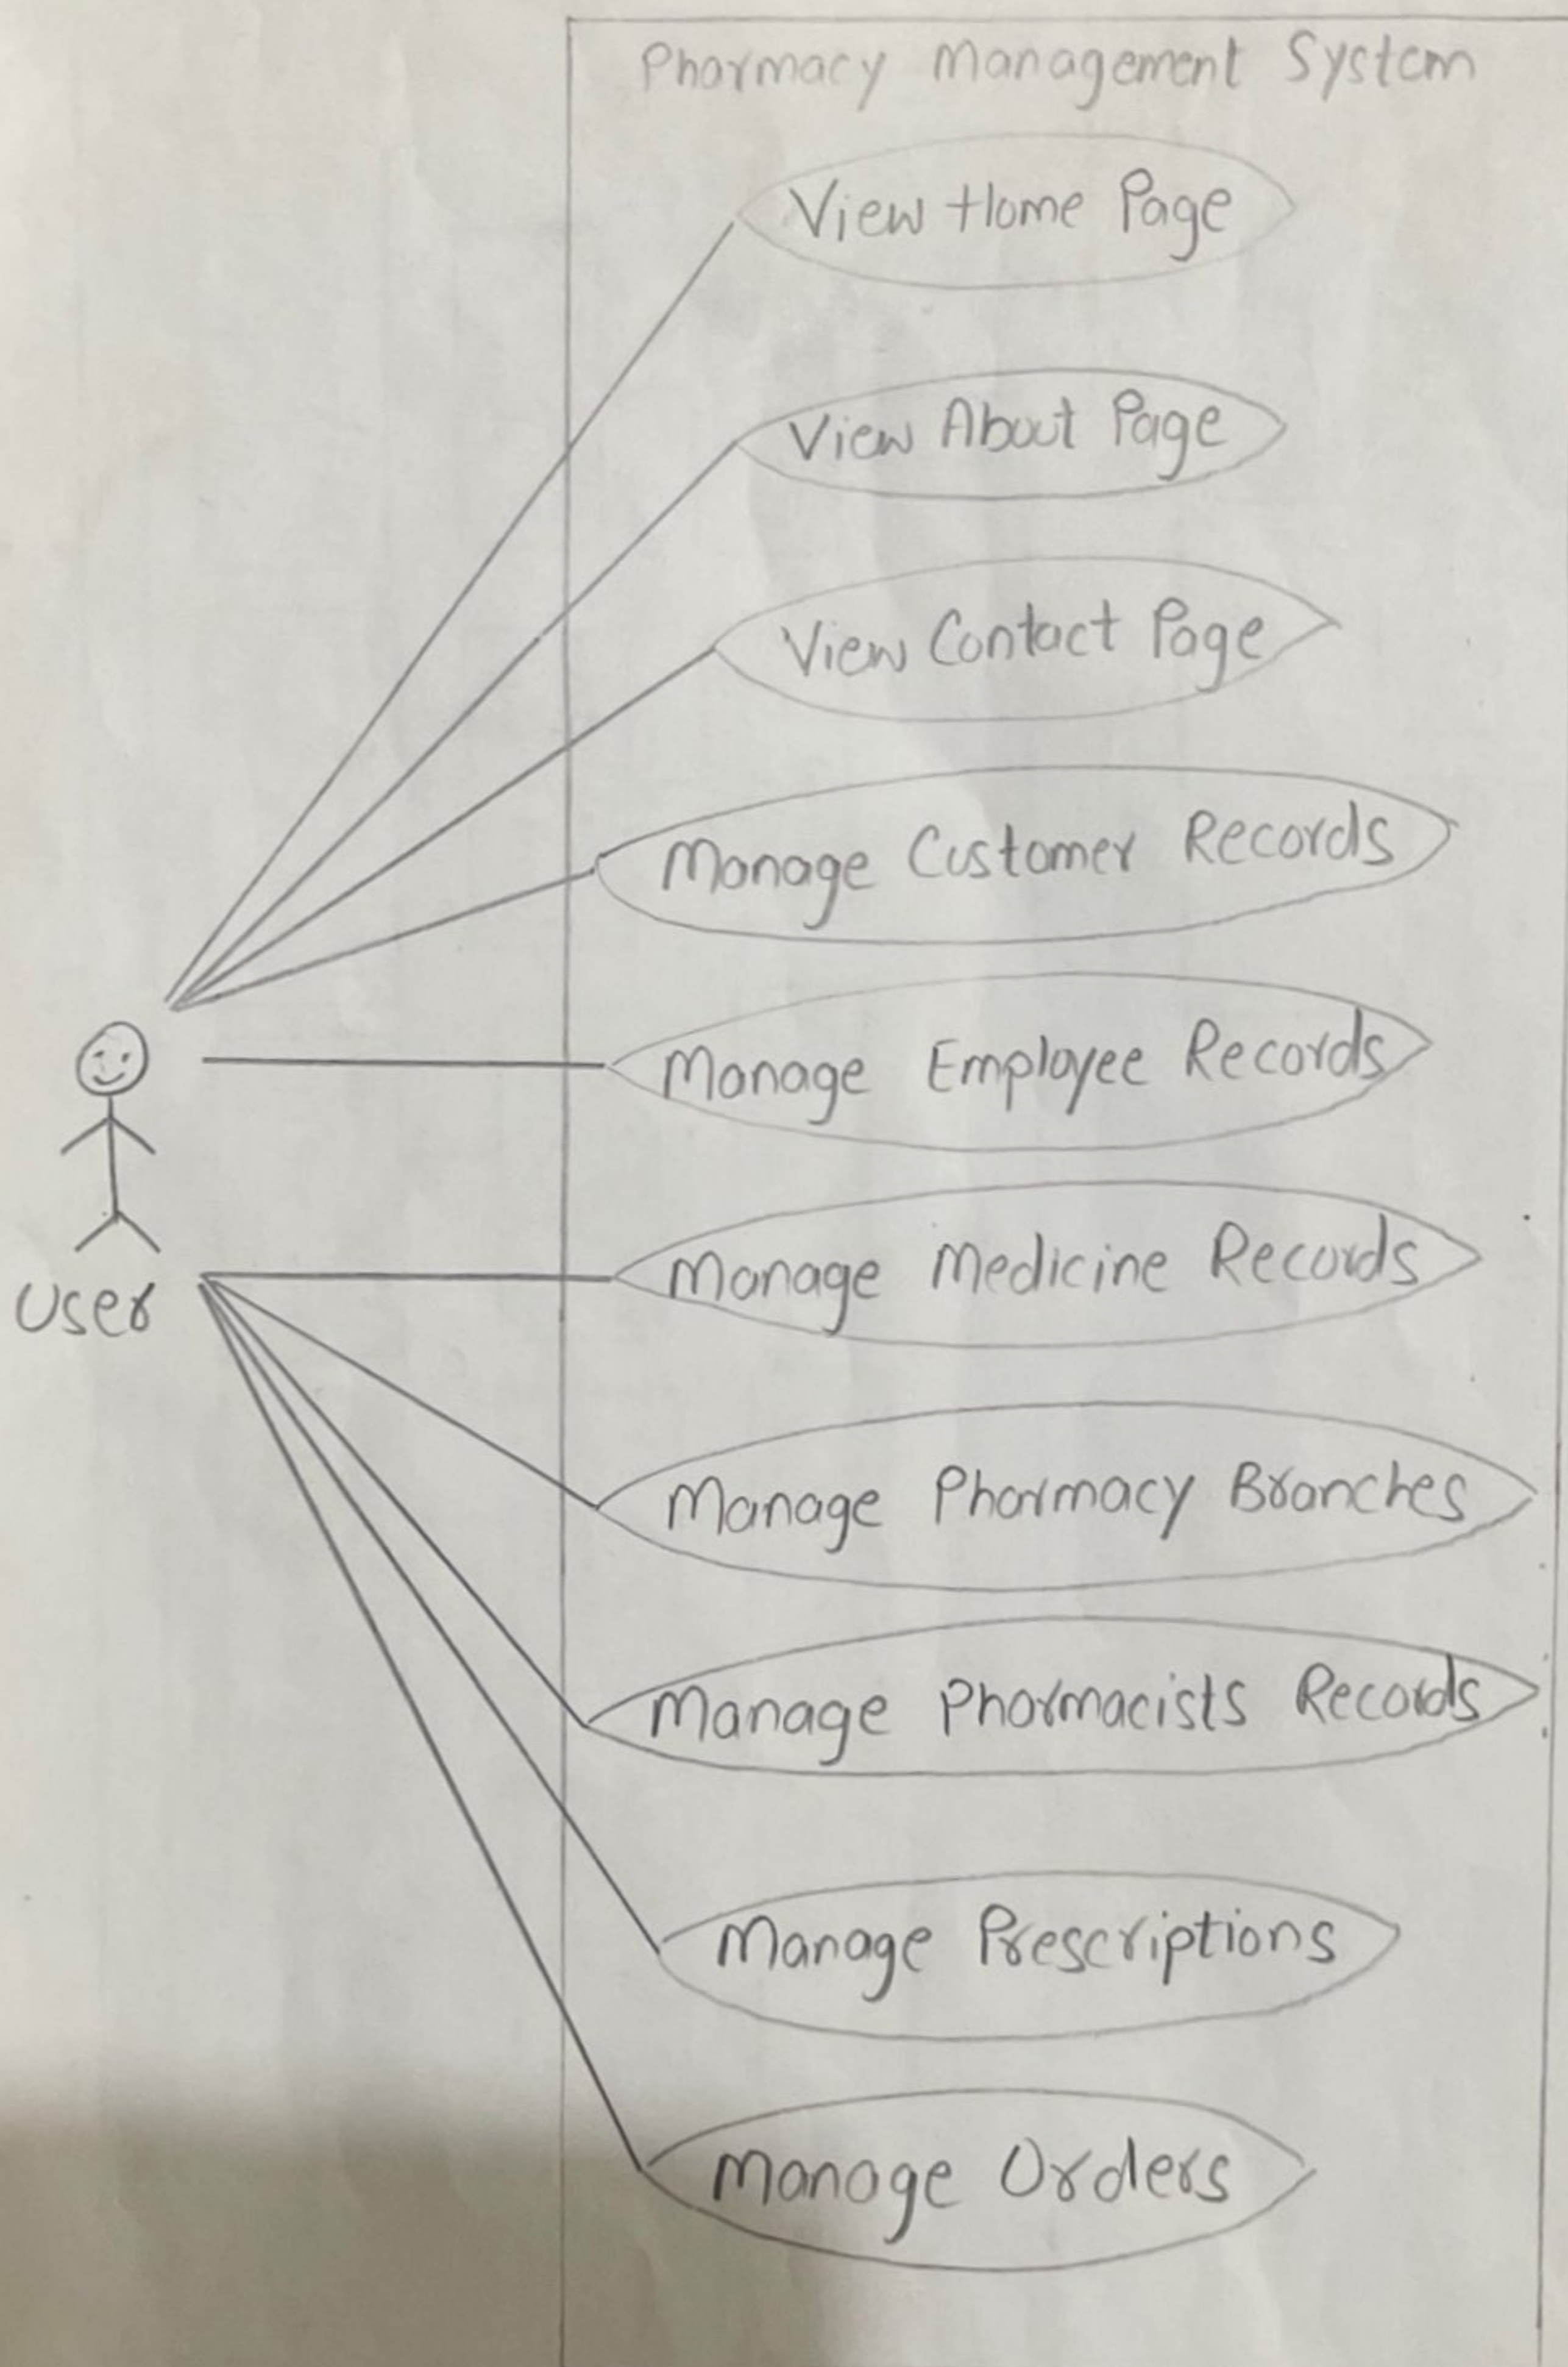 Pharmacy Management System
View Home Page
View About Page
View Contact Page
Manage Customer Records
Manage Employee Records
Manage Medicine Records
User
Manage Pharmacy Branches
Manage Pharmacists Records
Manage Prescriptions
Manage Orders